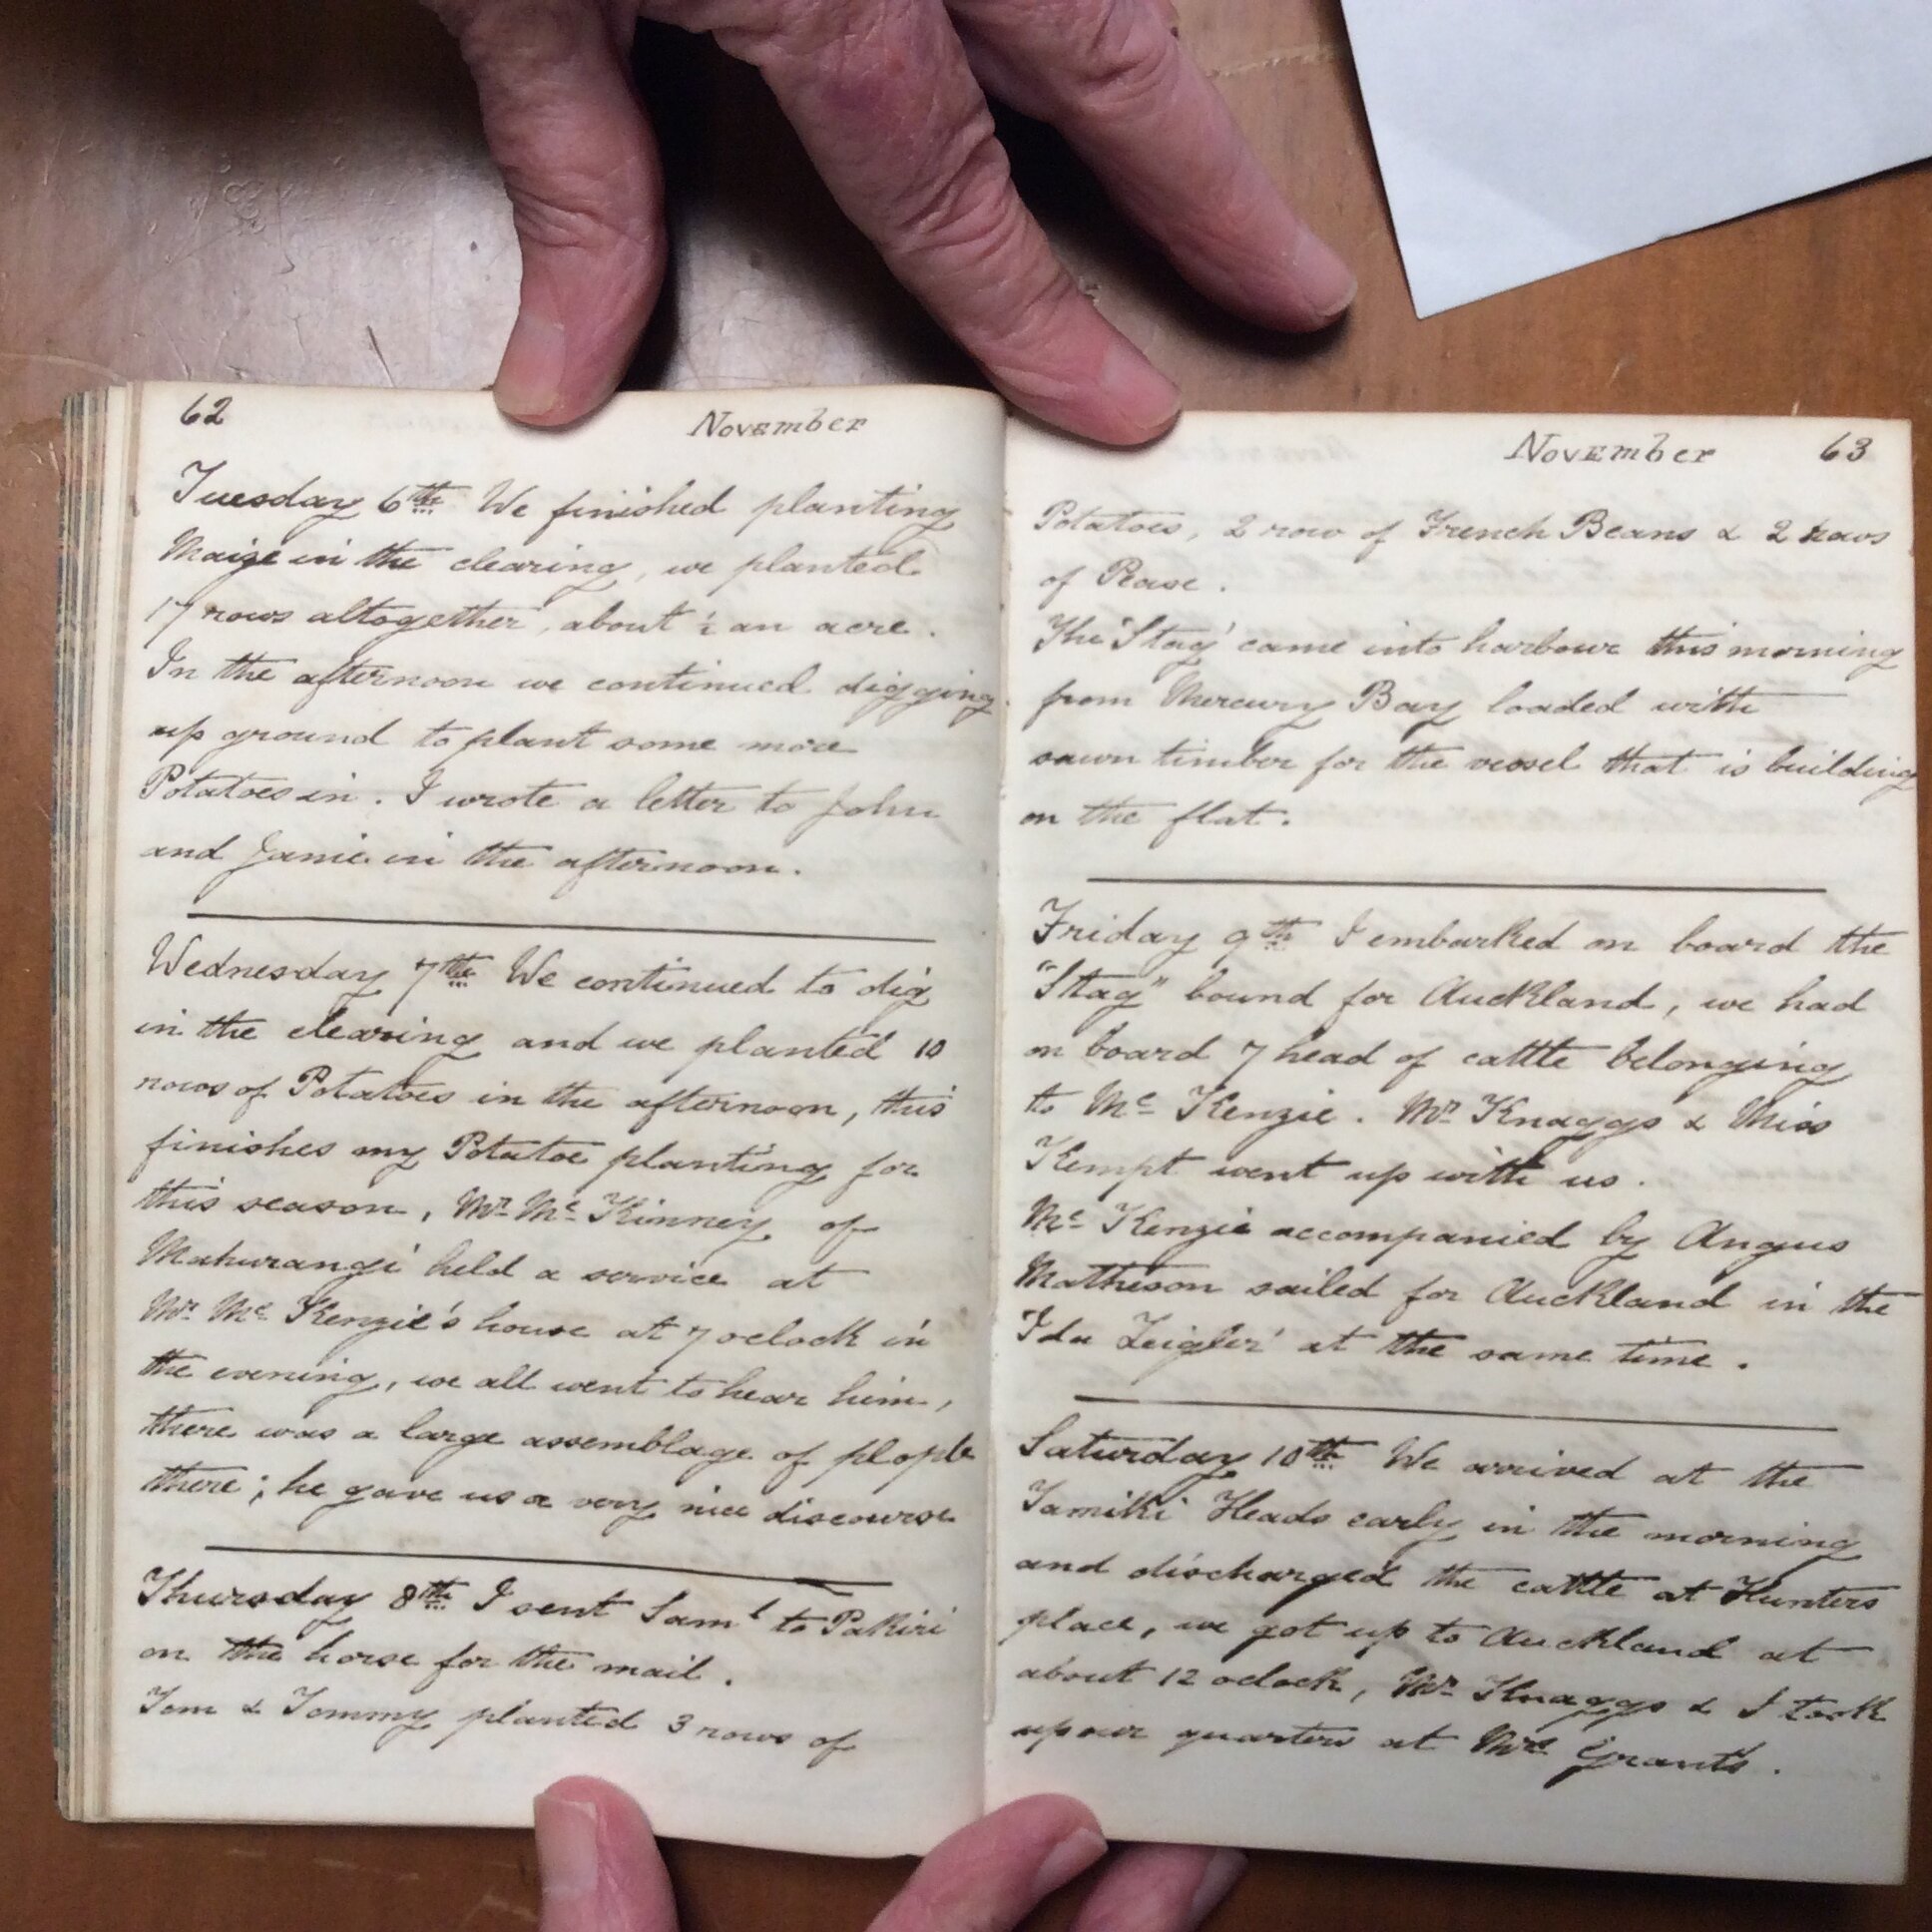 62 November
Tuesday 6th We finished planting
Maize in the clearing, we planted
17 rows altogether, about ½ an acre.
In the afternoon we continued digging
up ground to plant some more
Potatoes in. I wrote a letter to John
and Janie in the afternoon.
Wednesday 7th We continued to dig
in the clearing and we planted 10
rows of Potatoes in the afternoon, this
finishes my Potatoe planting for
this season, Mr Mc Kinney of
Mahurangi held a service at
Mr Mc Kenzie's house at 7 oclock in
the evening, we all went to hear him,
there was a large assemblage of plople
there; he gave us a very nice discourse
Thursday 8th I sent Saml to Pakiri
on the horse for the mail.
Tom & Tommy planted 3 rows of
November 63
Potatoes, 2 row of French Beans & 2 rows
of Pease.
The 'Stag' came into harbour this morning
from Mercury Bay loaded with
sawn timber for the vessel that is building
on the flat.
Friday 9th I embarked on board the
"Stag" bound for Auckland, we had
on board 7 head of cattle belonging
to Mc Kenzie. Mr Knaggs & Miss
Kempt went up with us.
Mc Kenzie accompanied by Angus
Matheson sailed for Auckland in the
'Ida Zeigler' at the same time.
Saturday 10th We arrived at the
Tamiki Heads early in the morning
and discharged the cattle at Hunters
place, we got up to Auckland at
about 12 oclock, Mr Knaggs & I took
up our quarters at Mrs Grants.